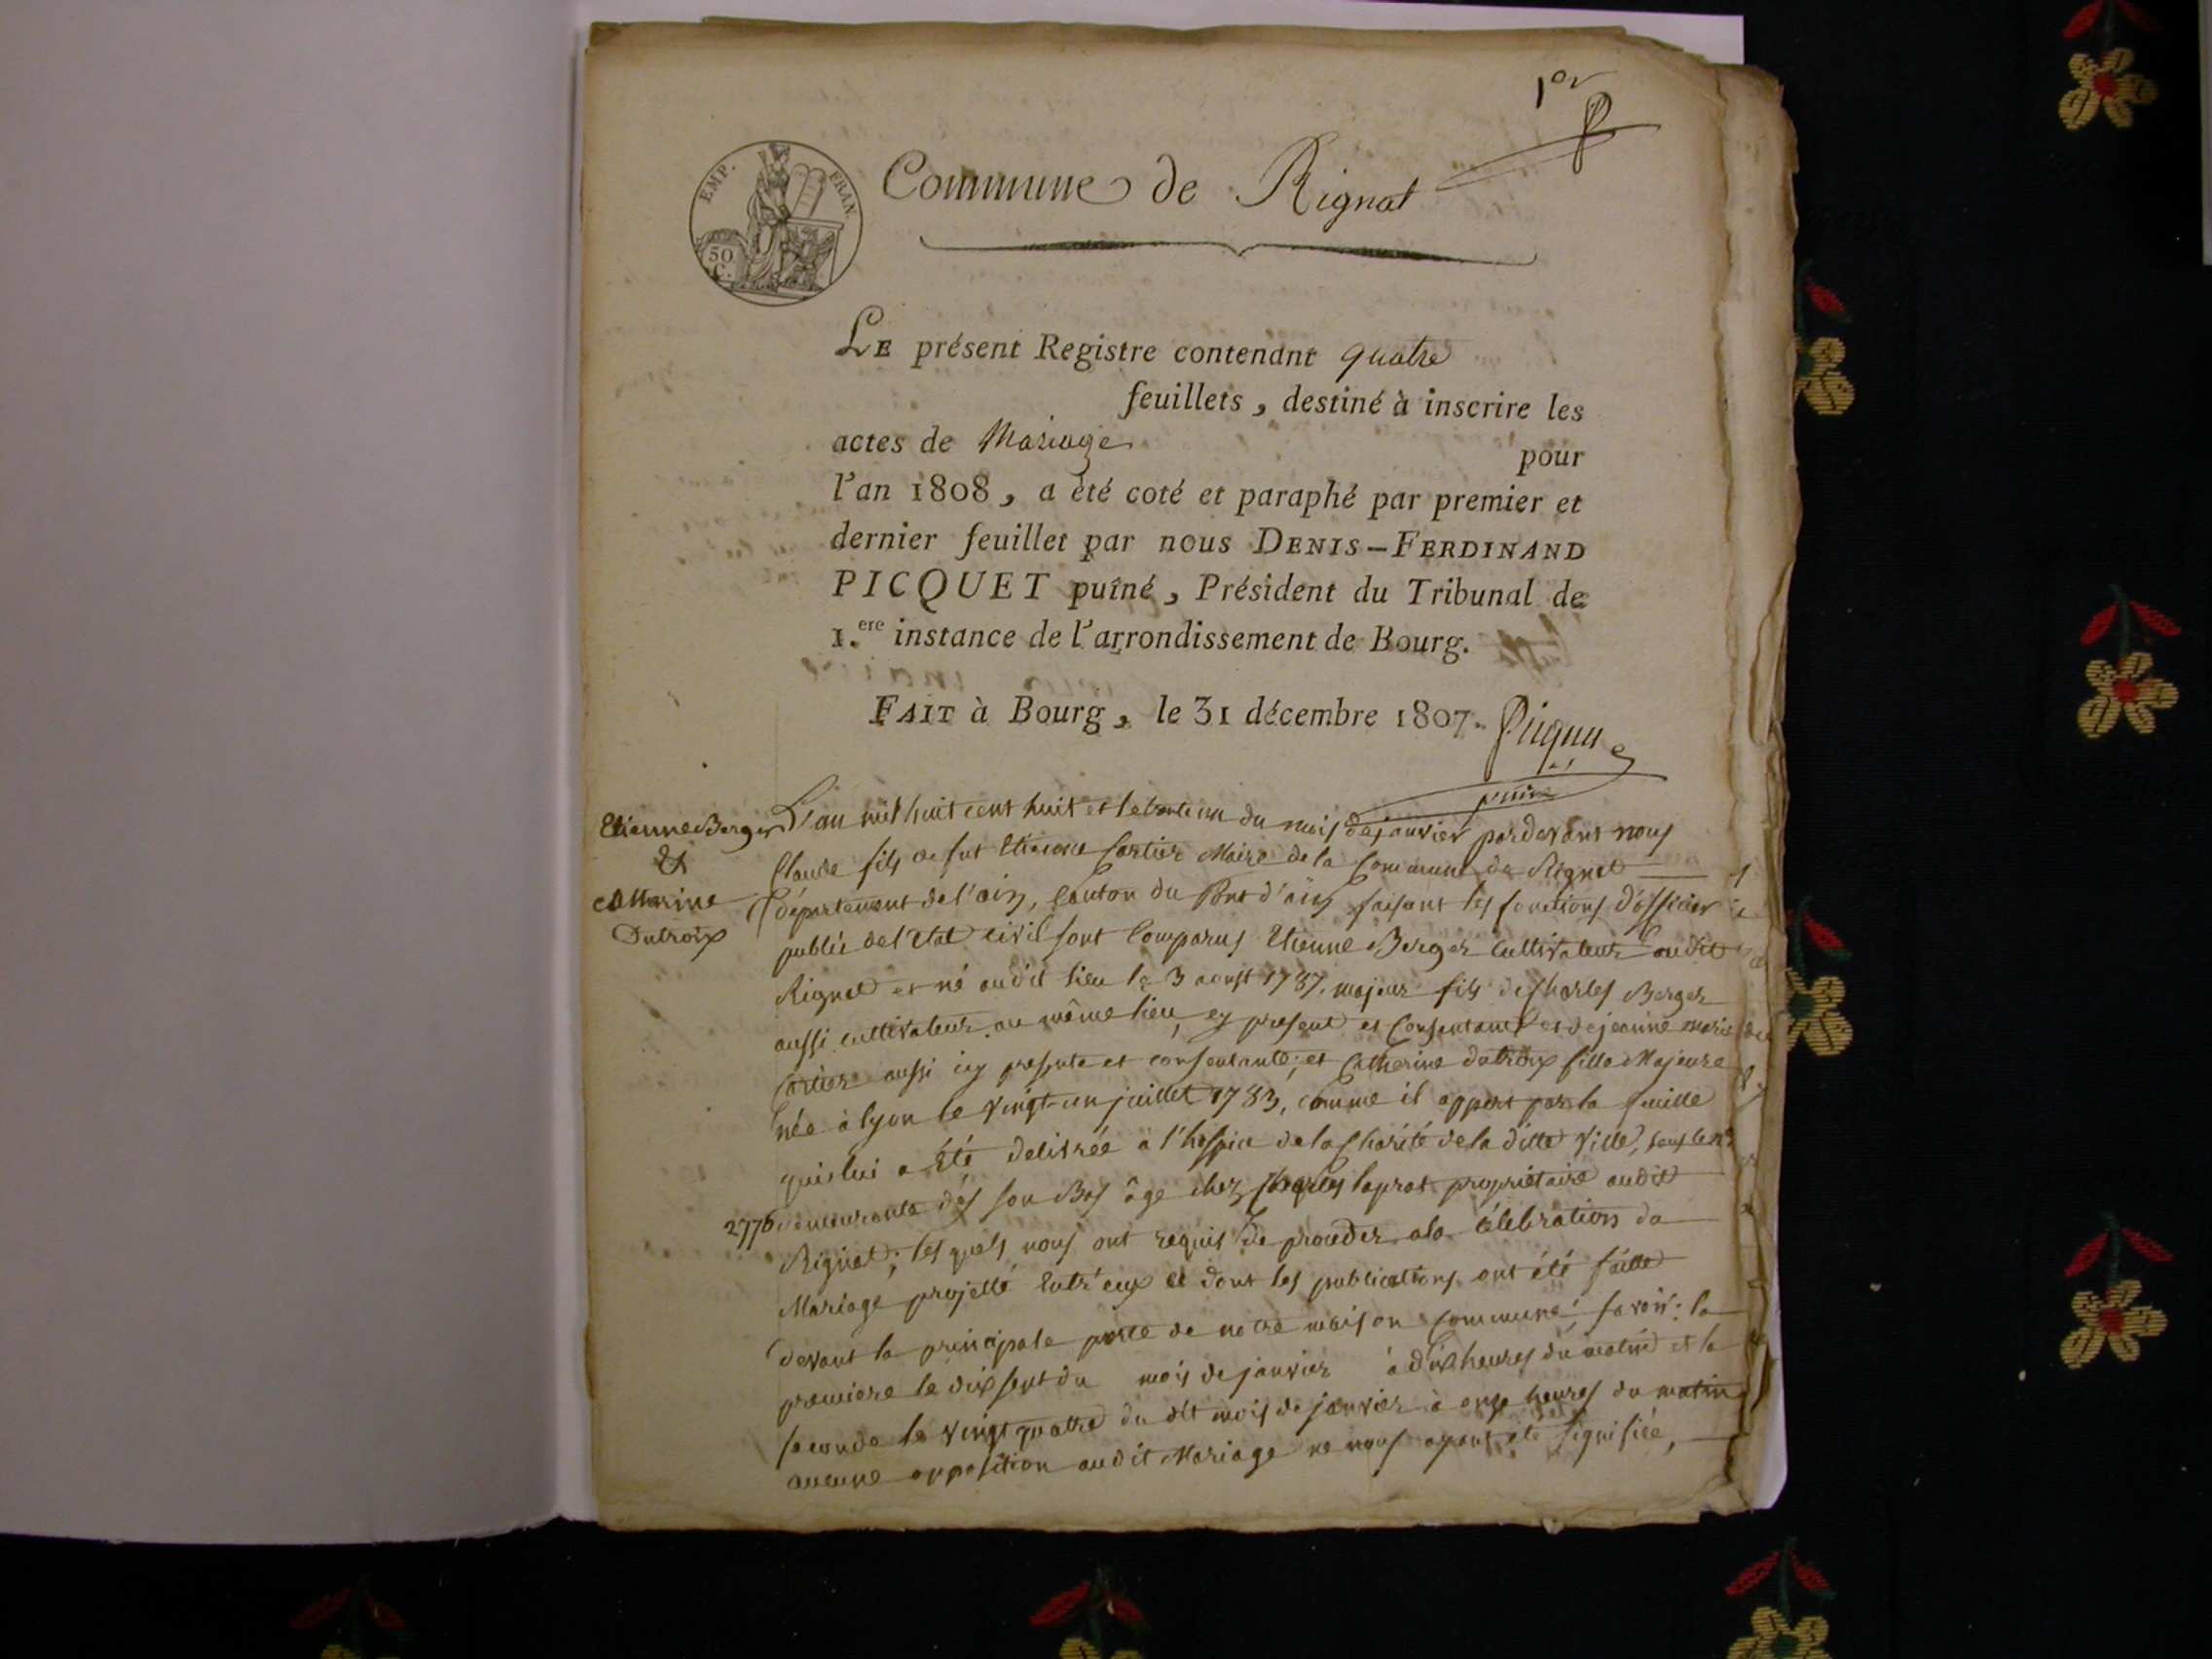 1er
EMP. FRAN.
50
C.
Commune de Rignat
LE présent Registre contenant quatre
feuillets, destiné à inscrire les
actes de Mariage
pour
l'an 1808, a été coté et paraphé par premier et
dernier feuillet par nous DENIS-FERDINAND
PICQUET puîné, Président du Tribunal de
1.ere instance de l'arrondissement de Bourg.
FAIT à Bourg, le 31 décembre 1807.
Picquet
puiné
Etienne Berger
&
Catherine
Dutroix
L'an mil huit cent huit et le trente un du mois de janvier pardevant nous
Claude fils de fut Etienne Cortier Maire de la Commune de Rignat
département de l'ain, Canton du Pont d'ain faisant les fonctions d'officier
public de l'Etat civil sont Comparus Etienne Berger Cultivateur audit
Rignat et né audit lieu le 3 aoust 1787. majeur fils de Charles Berger
aussi cultivateur au même lieu, cy present et Consentant et de jeanne marie
Cortier aussi icy presente et consentante; et Catherine dutroix fille Majeure
née à lyon le vingt-un juillet 1783, comme il appert par la feuille
qui lui a été delivrée à l'hospice de la Charité de la ditte Ville, sous le n°
2776 demeurante dès son Bas âge chez Charles laprat propriétaire audit
Rignat; les quels nous ont requis de proceder a la célébration du
Mariage projetté entr'eux et dont les publications ont été faitte
devant la principale porte de notre maison Commune; savoir: la
premiere le dix sept du mois de janvier à dix heures du matin et la
seconde le vingt quatre du dit mois de janvier à onze heures du matin
aucune opposition audit Mariage ne nous ayant été signifiée,